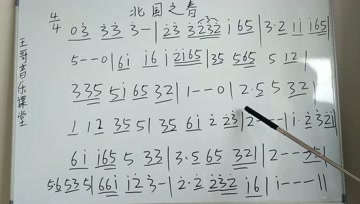 北国之春
4/4
王哥音乐课堂
03 33 3-|23 3232 i 65|3·2 1i i65|
5--0|6i i6 i2i65|35 565 5 12|
335 5i 65 32|1--0|2·5 5 32|
1 12 35 5|35 6i 2 23|2---|i·232|
6i i65 5 33|3·5 65 321|2--
565535|66i i2 3-|2·2 232 i6|i---||